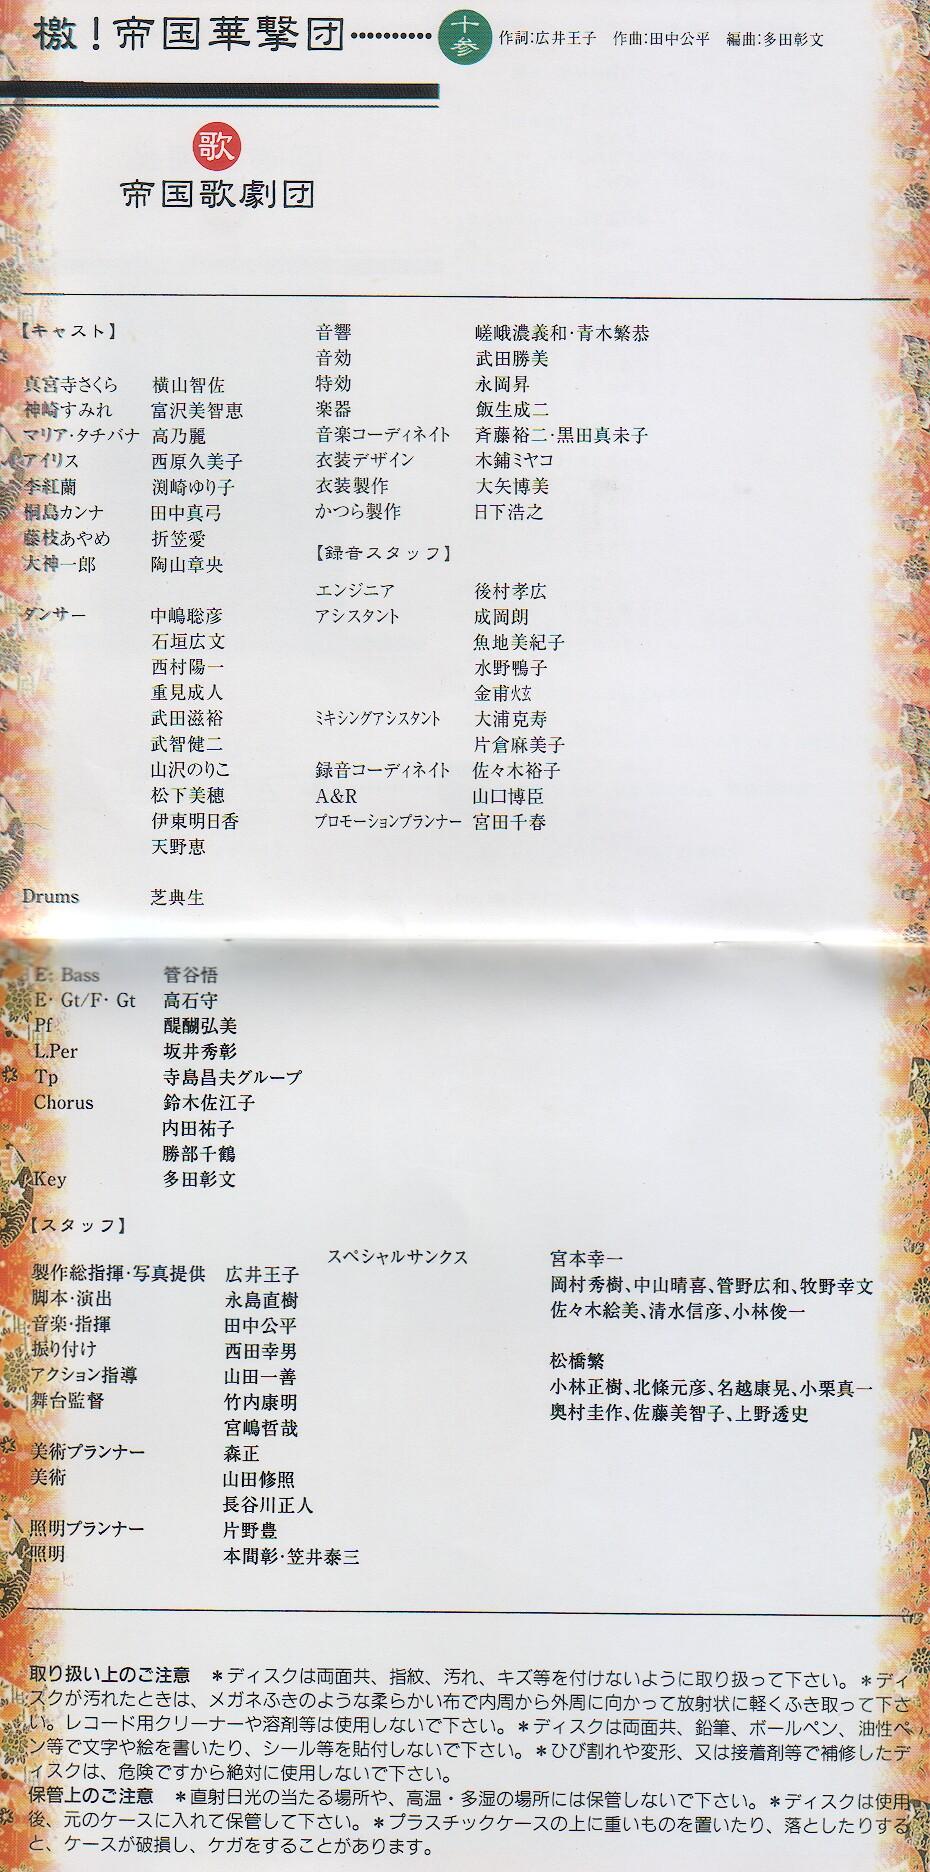 檄！帝国華撃団 十参 作詞:広井王子 作曲:田中公平 編曲:多田彰文
歌
帝国歌劇団
【キャスト】
真宮寺さくら 横山智佐
神崎すみれ 富沢美智恵
マリア・タチバナ 高乃麗
アイリス 西原久美子
李紅蘭 渕崎ゆり子
桐島カンナ 田中真弓
藤枝あやめ 折笠愛
大神一郎 陶山章央
ダンサー 中嶋聡彦
石垣広文
西村陽一
重見成人
武田滋裕
武智健二
山沢のりこ
松下美穂
伊東明日香
天野恵
Drums 芝典生
音響 嵯峨濃義和・青木繁恭
音効 武田勝美
特効 永岡昇
楽器 飯生成二
音楽コーディネイト 斉藤裕二・黒田真未子
衣装デザイン 木鋪ミヤコ
衣装製作 大矢博美
かつら製作 日下浩之
【録音スタッフ】
エンジニア 後村孝広
アシスタント 成岡朗
魚地美紀子
水野鴨子
金甫炫
ミキシングアシスタント 大浦克寿
片倉麻美子
録音コーディネイト 佐々木裕子
A&R 山口博臣
プロモーションプランナー 宮田千春
E: Bass 管谷悟
E・Gt/F・Gt 高石守
Pf 醍醐弘美
L.Per 坂井秀彰
Tp 寺島昌夫グループ
Chorus 鈴木佐江子
内田祐子
勝部千鶴
Key 多田彰文
【スタッフ】
製作総指揮・写真提供 広井王子
脚本・演出 永島直樹
音楽・指揮 田中公平
振り付け 西田幸男
アクション指導 山田一善
舞台監督 竹内康明
宮嶋哲哉
美術プランナー 森正
美術 山田修照
長谷川正人
照明プランナー 片野豊
照明 本間彰・笠井泰三
スペシャルサンクス 宮本幸一
岡村秀樹、中山晴喜、管野広和、牧野幸文
佐々木絵美、清水信彦、小林俊一
松橋繁
小林正樹、北條元彦、名越康晃、小栗真一
奥村圭作、佐藤美智子、上野透史
取り扱い上のご注意 ＊ディスクは両面共、指紋、汚れ、キズ等を付けないように取り扱って下さい。＊ディ
スクが汚れたときは、メガネふきのような柔らかい布で内周から外周に向かって放射状に軽くふき取って下さ
い。レコード用クリーナーや溶剤等は使用しないで下さい。＊ディスクは両面共、鉛筆、ボールペン、油性ペ
ン等で文字や絵を書いたり、シール等を貼付しないで下さい。＊ひび割れや変形、又は接着剤等で補修したデ
ィスクは、危険ですから絶対に使用しないで下さい。
保管上のご注意 ＊直射日光の当たる場所や、高温・多湿の場所には保管しないで下さい。＊ディスクは使用
後、元のケースに入れて保管して下さい。＊プラスチックケースの上に重いものを置いたり、落としたりする
と、ケースが破損し、ケガをすることがあります。